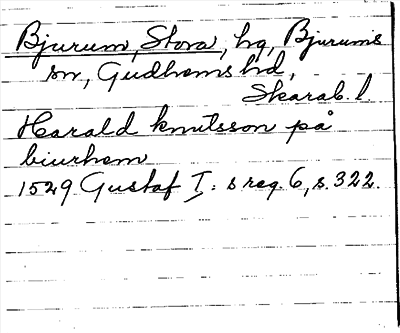 Bjurum, Stora, hg, Bjurums
sn, Gudhems hd,
Skarab. l
Harald knutsson på
biurhem
1529 Gustaf I: s reg. 6, s. 322.